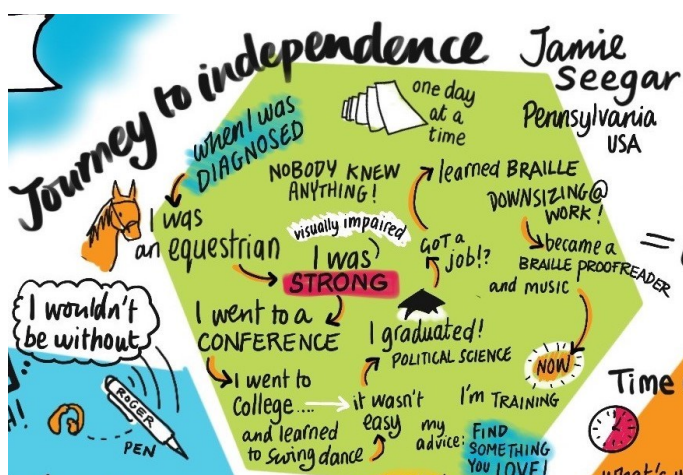 Journey to independence
Jamie
Seegar
Pennsylvania
USA
when I was
DIAGNOSED
I was
an equestrian
one day
at a
time
NOBODY KNEW
ANYTHING!
visually impaired
I was
STRONG
I went to a
CONFERENCE
I went to
College....
and learned
to swing dance
it wasn't
easy
I graduated!
POLITICAL SCIENCE
GOT a
job!?
learned BRAILLE
DOWNSIZING @
WORK!
became a
BRAILLE PROOFREADER
and music
NOW
I'm TRAINING
my
advice:
FIND
SOMETHING
YOU LOVE!
I wouldn't
be without
ROGER
PEN
Time
what's